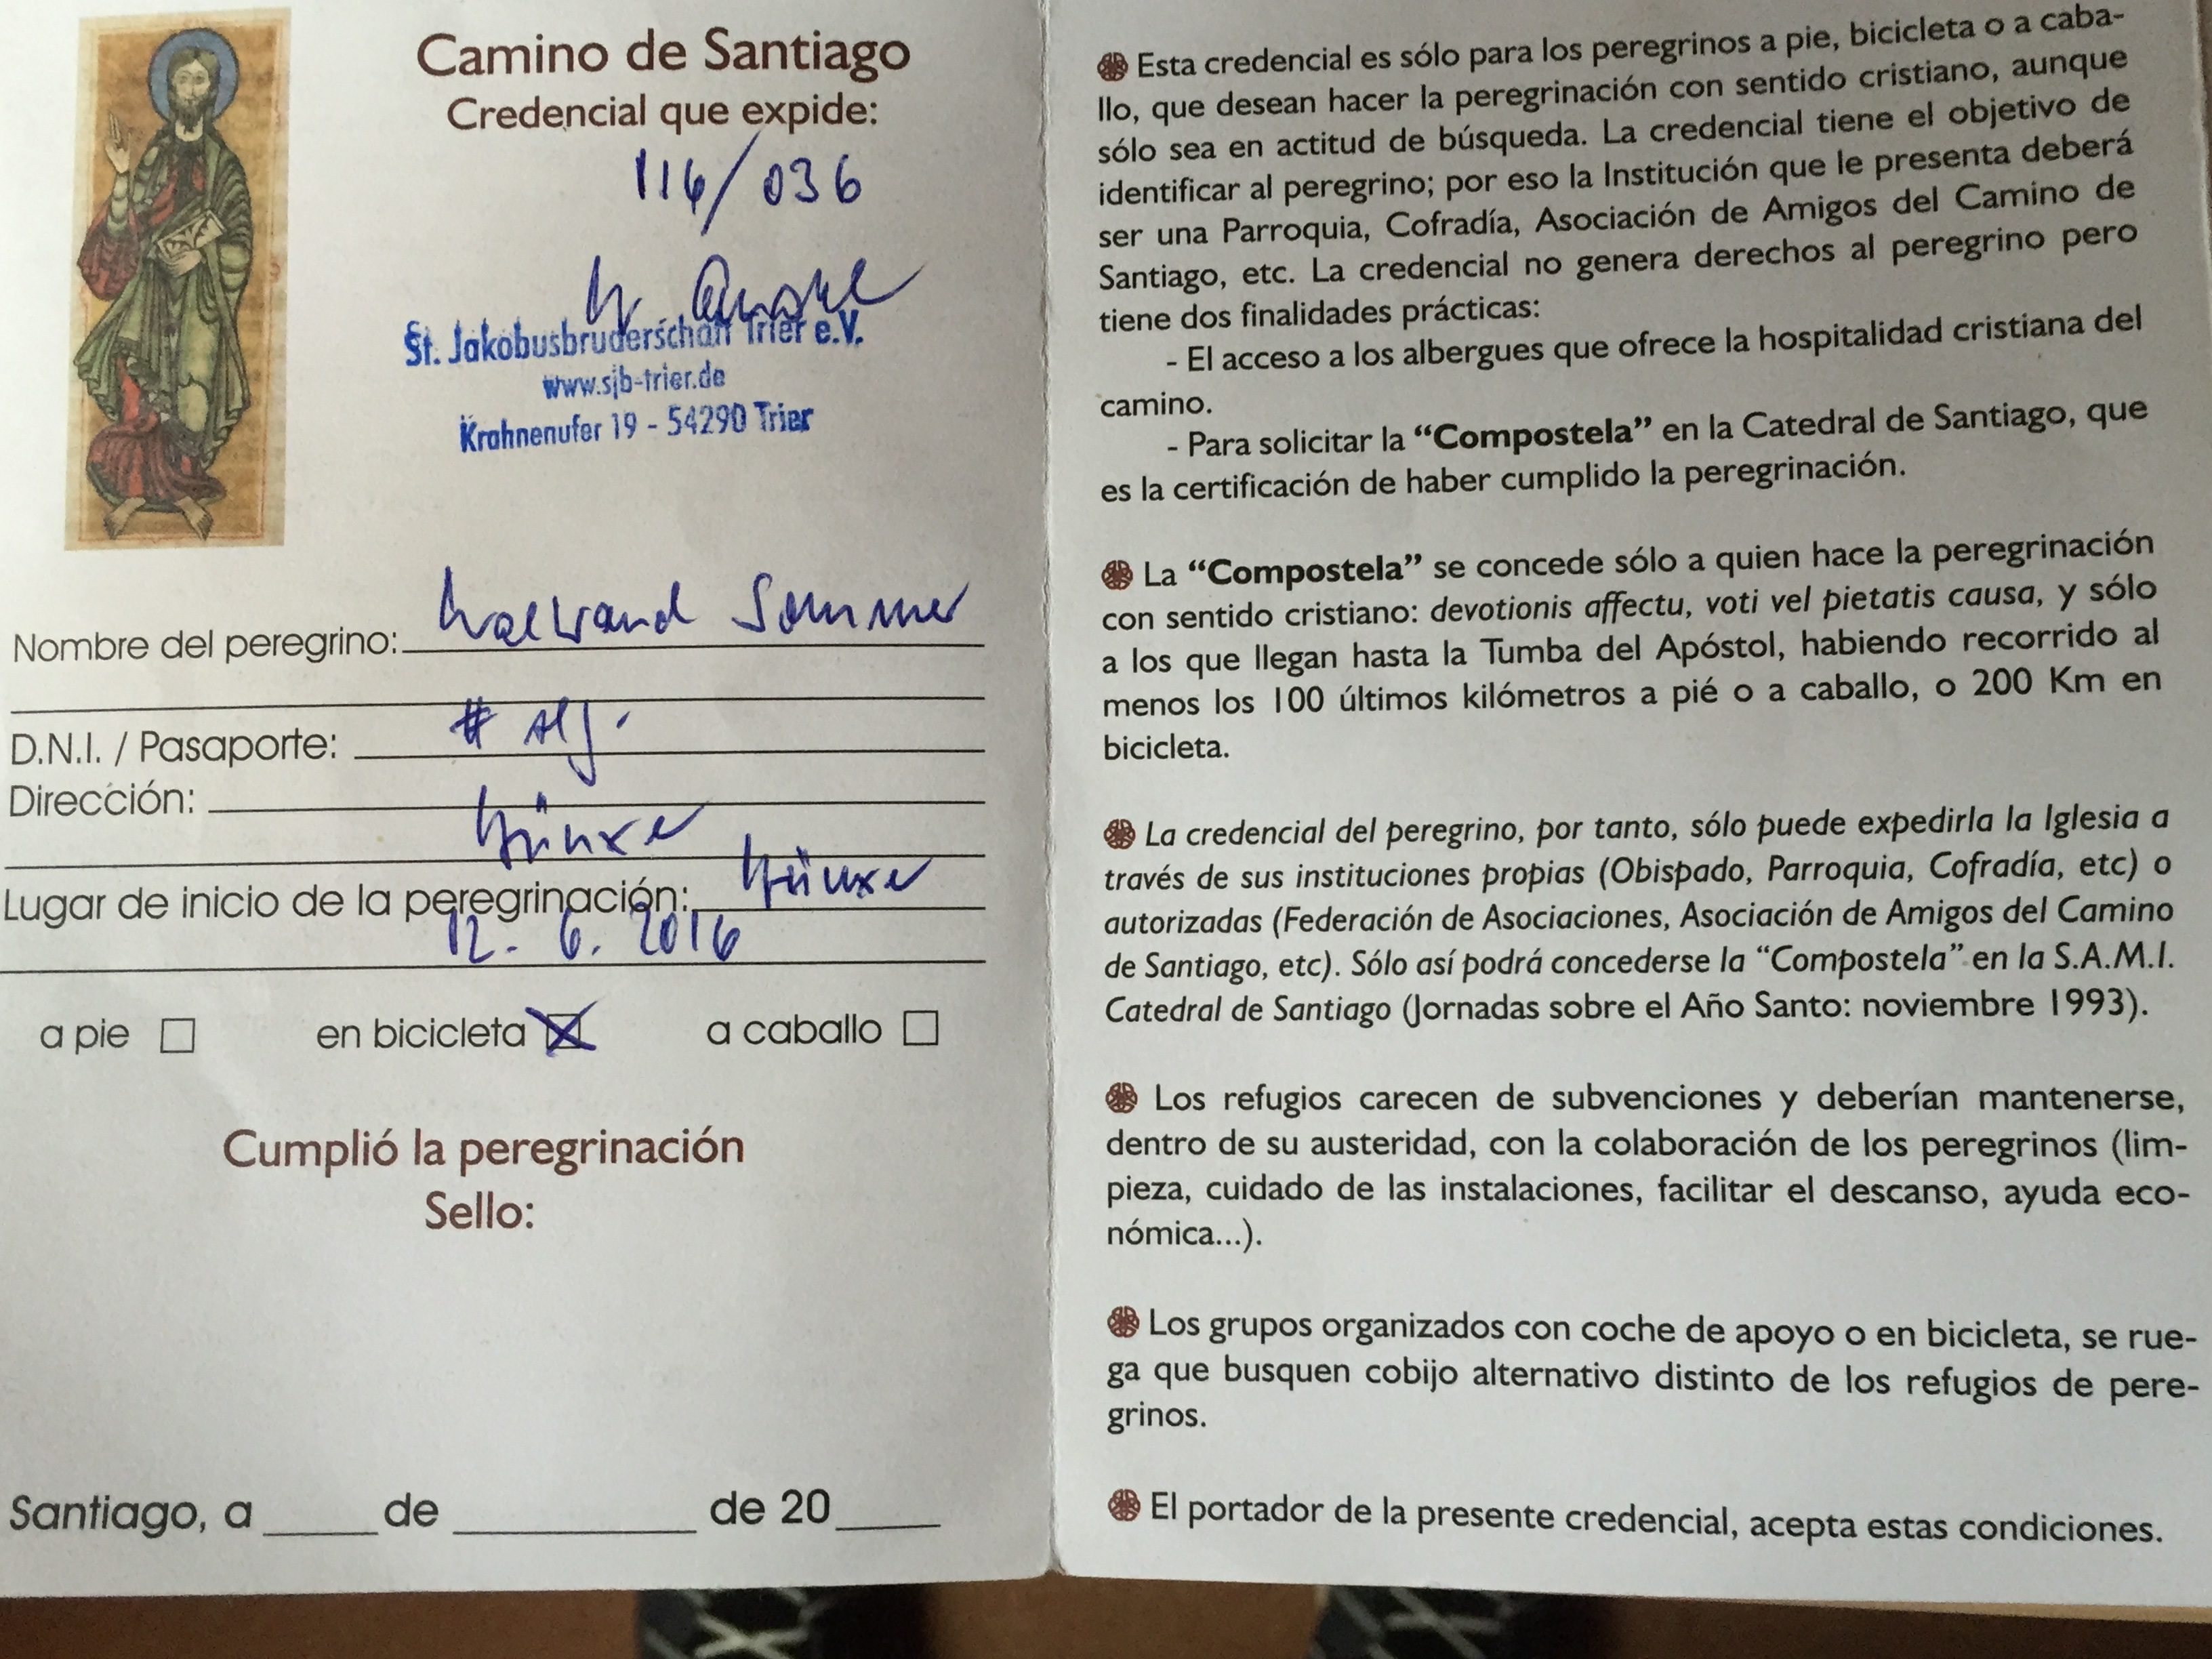 Camino de Santiago
Credencial que expide:
116/036
St. Jakobusbruderschaft Trier e.V.
www.sjb-trier.de
Krahnenufer 19 - 54290 Trier
Nombre del peregrino: Waltraud Sommer
D.N.I. / Pasaporte:
Dirección:
Hünxe
Lugar de inicio de la peregrinación: Hünxe
12. 6. 2016
a pie en bicicleta a caballo
Cumplió la peregrinación
Sello:
Santiago, a ____ de ________ de 20____
Esta credencial es sólo para los peregrinos a pie, bicicleta o a caba-
llo, que desean hacer la peregrinación con sentido cristiano, aunque
sólo sea en actitud de búsqueda. La credencial tiene el objetivo de
identificar al peregrino; por eso la Institución que le presenta deberá
ser una Parroquia, Cofradía, Asociación de Amigos del Camino de
Santiago, etc. La credencial no genera derechos al peregrino pero
tiene dos finalidades prácticas:
- El acceso a los albergues que ofrece la hospitalidad cristiana del
camino.
- Para solicitar la “Compostela” en la Catedral de Santiago, que
es la certificación de haber cumplido la peregrinación.
La “Compostela” se concede sólo a quien hace la peregrinación
con sentido cristiano: devotionis affectu, voti vel pietatis causa, y sólo
a los que llegan hasta la Tumba del Apóstol, habiendo recorrido al
menos los 100 últimos kilómetros a pié o a caballo, o 200 Km en
bicicleta.
La credencial del peregrino, por tanto, sólo puede expedirla la Iglesia a
través de sus instituciones propias (Obispado, Parroquia, Cofradía, etc) o
autorizadas (Federación de Asociaciones, Asociación de Amigos del Camino
de Santiago, etc). Sólo así podrá concederse la “Compostela” en la S.A.M.I.
Catedral de Santiago (Jornadas sobre el Año Santo: noviembre 1993).
Los refugios carecen de subvenciones y deberían mantenerse,
dentro de su austeridad, con la colaboración de los peregrinos (lim-
pieza, cuidado de las instalaciones, facilitar el descanso, ayuda eco-
nómica...).
Los grupos organizados con coche de apoyo o en bicicleta, se rue-
ga que busquen cobijo alternativo distinto de los refugios de pere-
grinos.
El portador de la presente credencial, acepta estas condiciones.